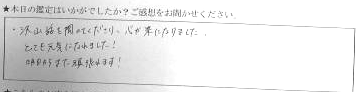 ★本日の鑑定はいかがでしたか？ご感想をお聞かせください
・沢山話を聞いてくださり、心が楽になりました。
とても元気になれました！
明日からまた頑張れます！